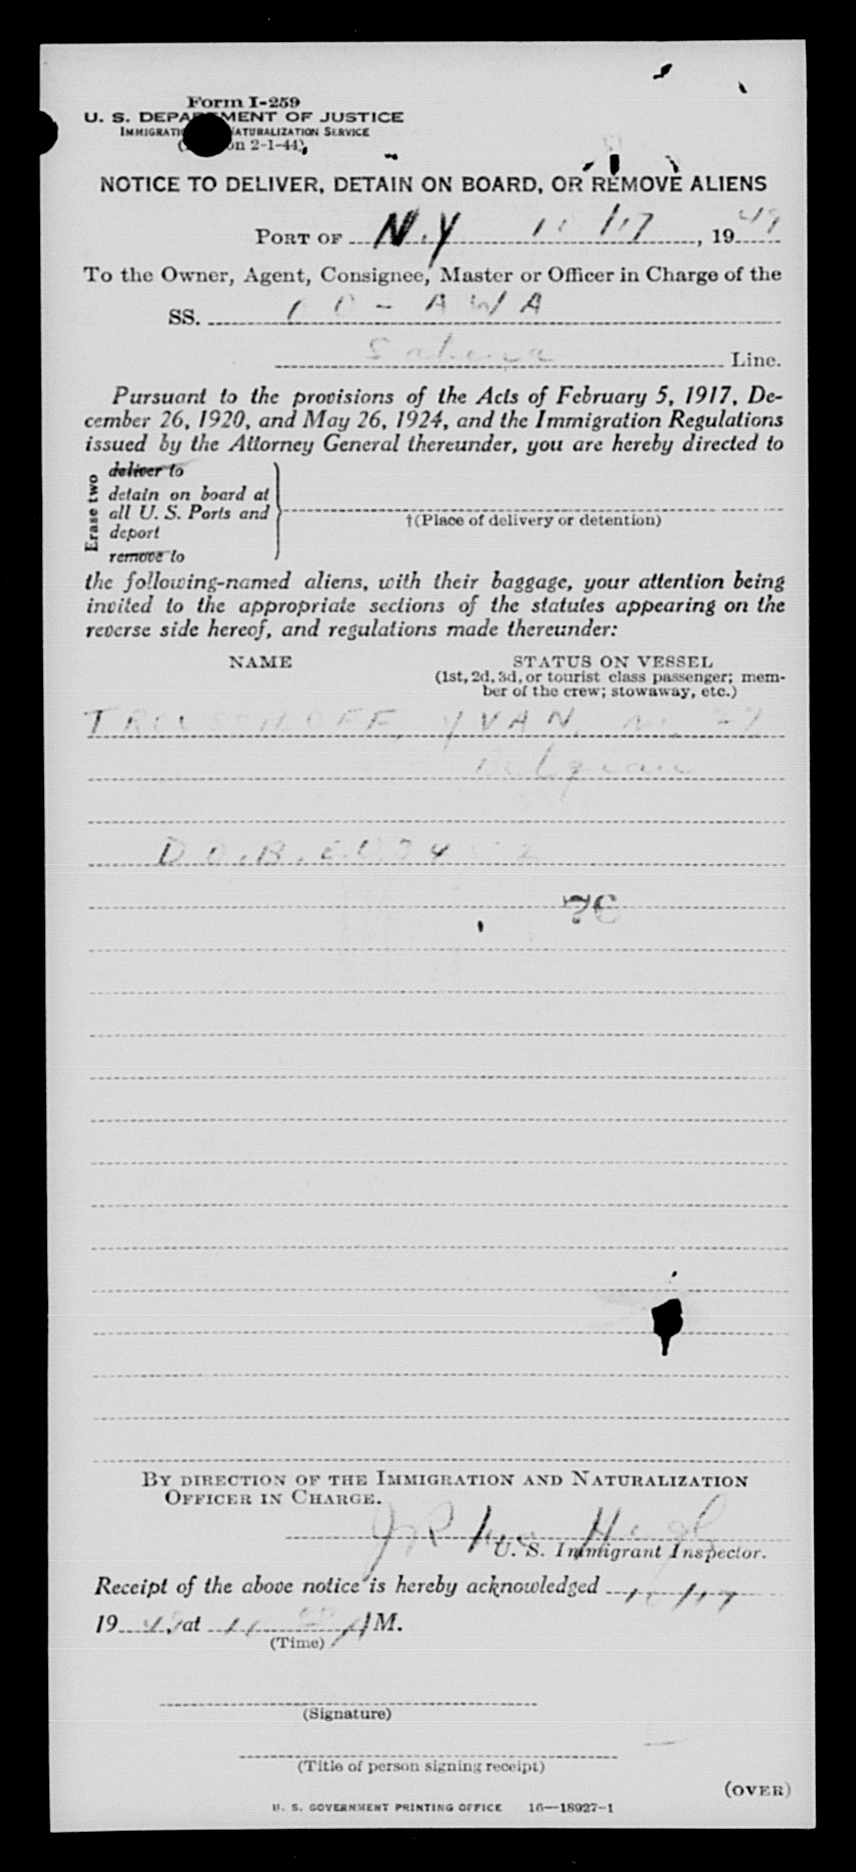 Form I-259
U. S. DEPARTMENT OF JUSTICE
IMMIGRATION NATURALIZATION SERVICE
2-1-44)
NOTICE TO DELIVER, DETAIN ON BOARD, OR REMOVE ALIENS
PORT OF N.Y 10/17, 1949
To the Owner, Agent, Consignee, Master or Officer in Charge of the
SS. OO-AWA
Sabena Line.
Pursuant to the provisions of the Acts of February 5, 1917, De-
cember 26, 1920, and May 26, 1924, and the Immigration Regulations
issued by the Attorney General thereunder, you are hereby directed to
Erase two
deliver to
detain on board at
all U. S. Ports and
deport
remove to
†(Place of delivery or detention)
the following-named aliens, with their baggage, your attention being
invited to the appropriate sections of the statutes appearing on the
reverse side hereof, and regulations made thereunder:
NAME STATUS ON VESSEL
(1st, 2d, 3d, or tourist class passenger; mem-
ber of the crew; stowaway, etc.)
YVAN,
Belgian
BY DIRECTION OF THE IMMIGRATION AND NATURALIZATION
OFFICER IN CHARGE.
U. S. Immigrant Inspector.
Receipt of the above notice is hereby acknowledged 10/17
1949, at 11 A M.
(Time)
(Signature)
(Title of person signing receipt)
(OVER)
U. S. GOVERNMENT PRINTING OFFICE 16—18927-1